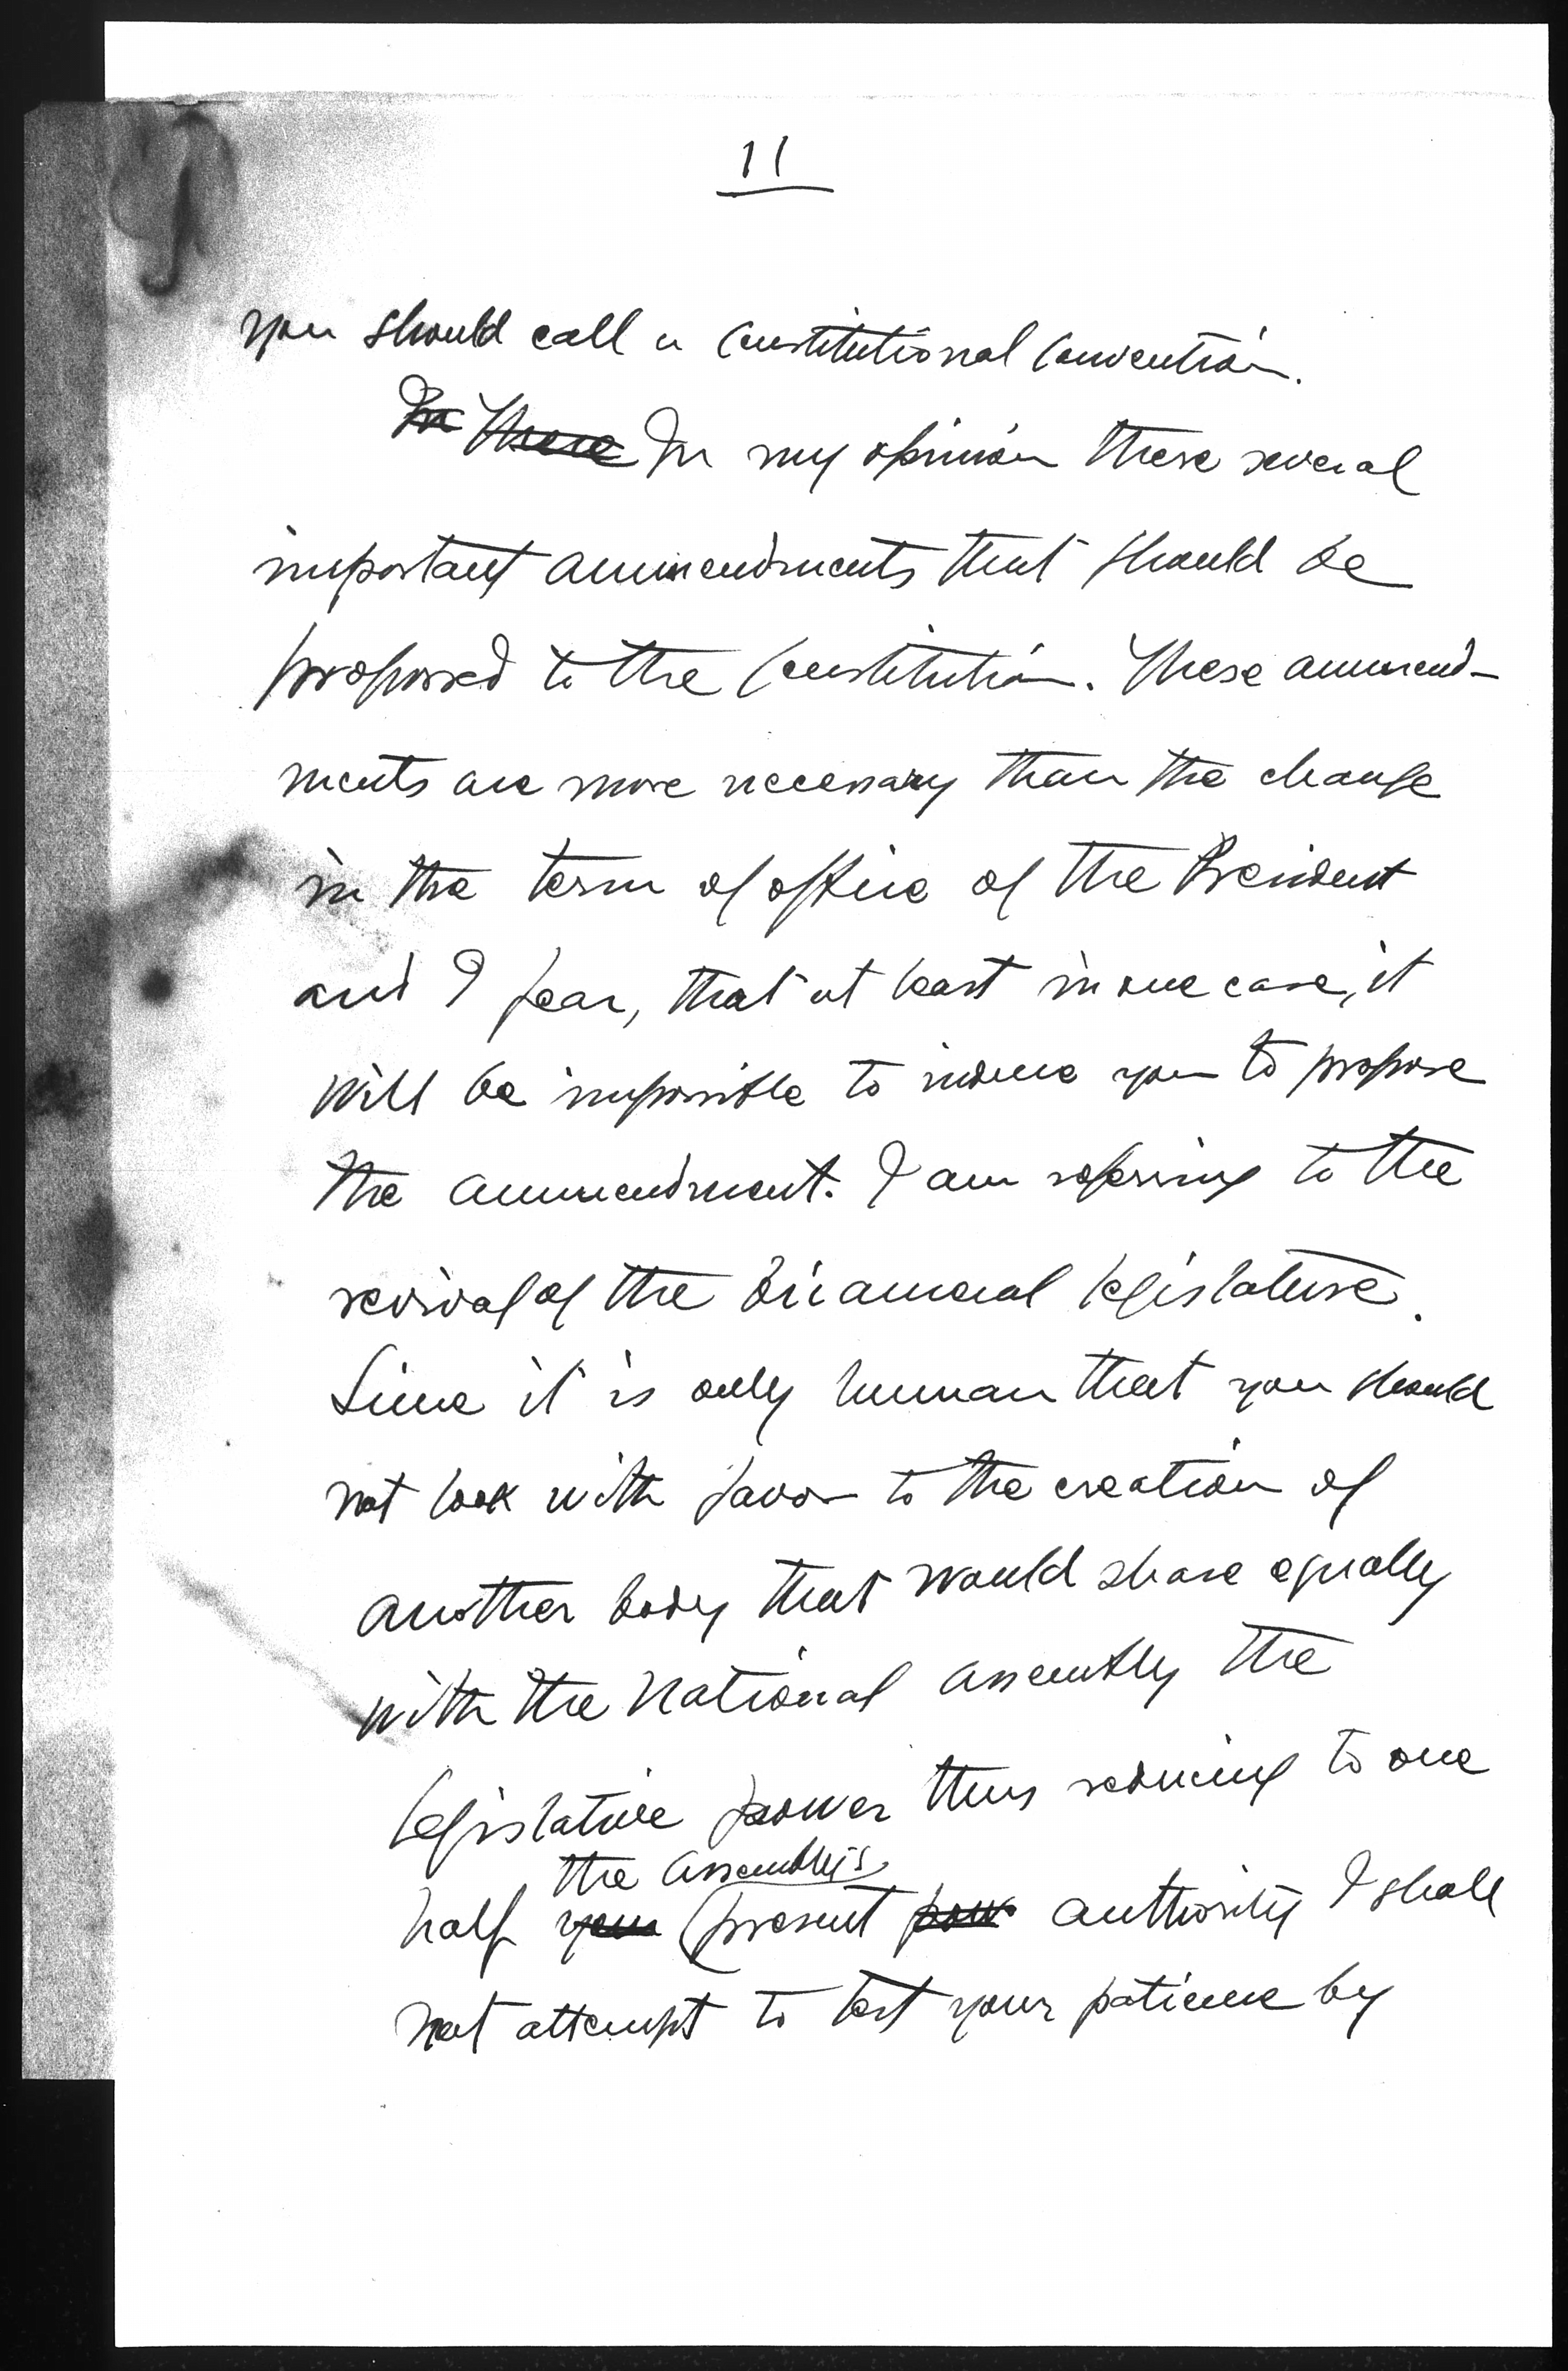 11
you should call a Constitutional Convention.
In There In my opinion there several
important ammendments that should be
proposed to the Constitution. These ammend-
ments are more necessary than the change
in the term of office of the President
and I fear, that at least in one case, it
will be impossible to induce you to propose
the ammendment. I am refering to the
revival of the bicameral legislature.
Since it is only human that you should
not look with favor to the creation of
another body that would share equally
with the National Assembly the
legislative power thus reducing to one
the Assembly's
half your present pow authority I shall
not attempt to test your patience by